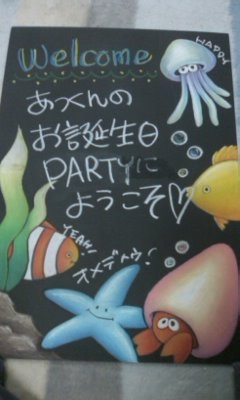 Welcome
HAPPY
あっくんの
お誕生日
PARTYに
ようこそ♡
YEAH!
オメデトウ!